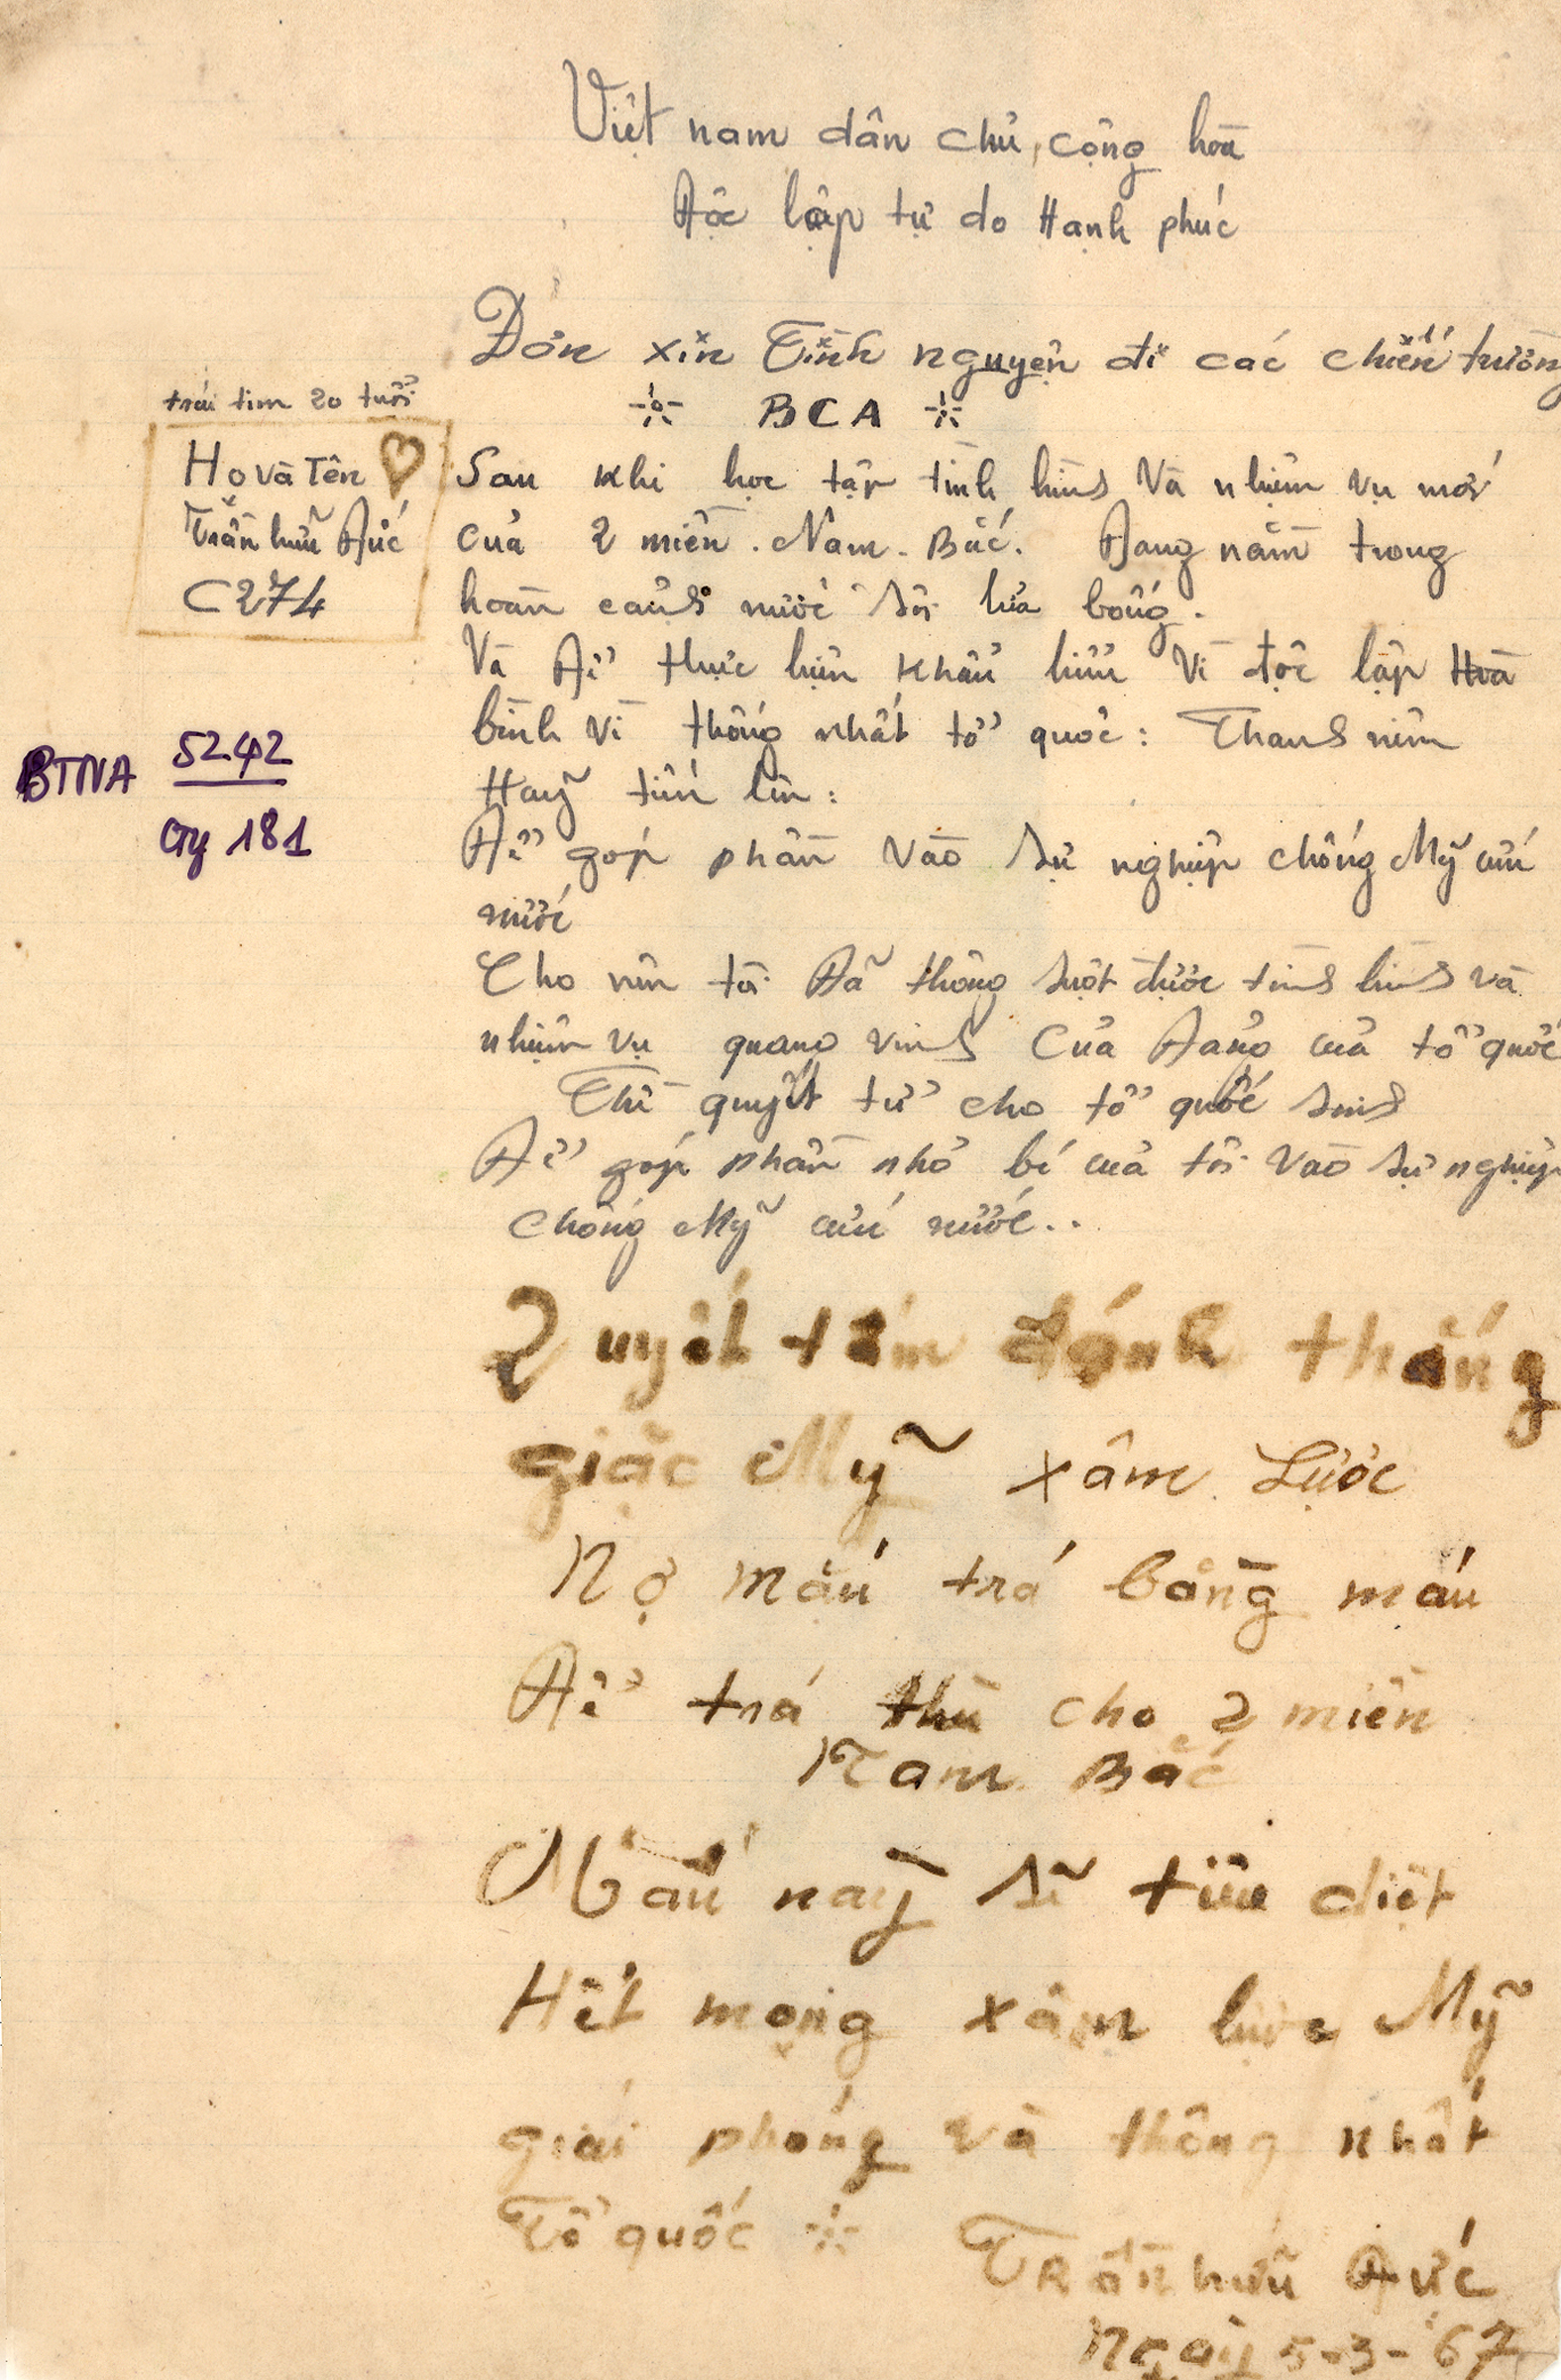 Việt nam dân chủ, cộng hòa
Độc lập tự do Hạnh phúc
Đơn xin Tình nguyện đi các chiến trường
BCA
trái tim 20 tuổi
Họ và Tên
Trần hữu Đức
C274
Sau khi học tập tình hình và nhiệm vụ mới
của 2 miền. Nam. Bắc. Đang nằm trong
hoàn cảnh nước sôi lửa bỏng.
Và Để thực hiện khẩu hiệu Vì độc lập Hoà
bình Vì thống nhất tổ quốc: Thanh niên
Hãy tiến lên:
BTNA 5242
Gy 181
Để góp phần vào sự nghiệp chống Mỹ cứu
nước
Cho nên tôi Đã thông suột được tình hình và
nhiệm vụ quang vinh Của Đảng của tổ quốc
Thì quyết tử cho tổ quốc sinh
Để góp phần nhỏ bé của tôi vào sự nghiệp
chống Mỹ cứu nước..
Quyết tâm đánh thắng
giặc Mỹ xâm Lược
Nợ máu trá bằng máu
Để trá thù cho 2 miền
Nam Bắc
Máu nầy sẽ tiêu diệt
Hết mọng xâm lược Mỹ
giải phóng và thông nhất
Tổ quốc Trần hữu Đức
Ngày 5-3-67